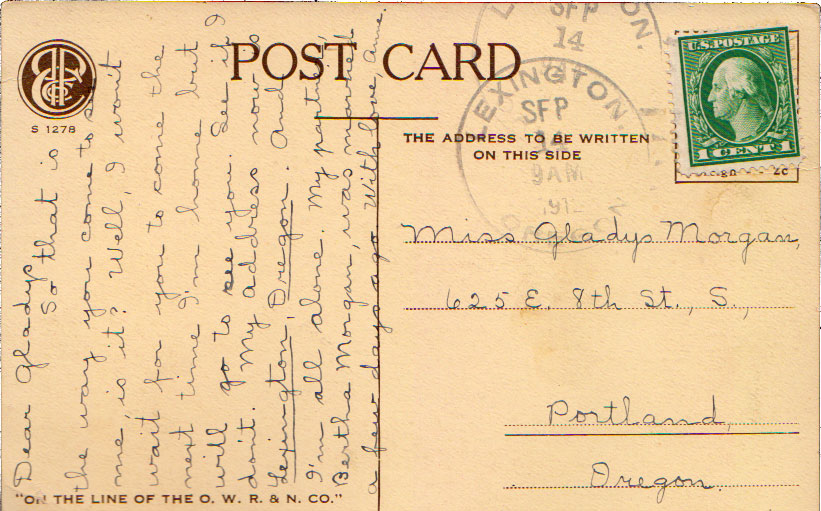 POST CARD
S 1278
THE ADDRESS TO BE WRITTEN
ON THIS SIDE
LEXINGTON
SEP
14
9AM
U.S. POSTAGE
1 CENT 1
Dear Gladys
So that is
the way you come to see
me, is it? Well, I won't
wait for you to come the
next time I'm home but
will go to see you. See if I
don't. My address now is
Lexington, Oregon. And
I'm all alone. My partner,
Bertha Morgan, was married
a few days ago. With love, Ame.
Miss Gladys Morgan,
625 E. 8th St., S.,
Portland,
Oregon.
"ON THE LINE OF THE O. W. R. & N. CO."